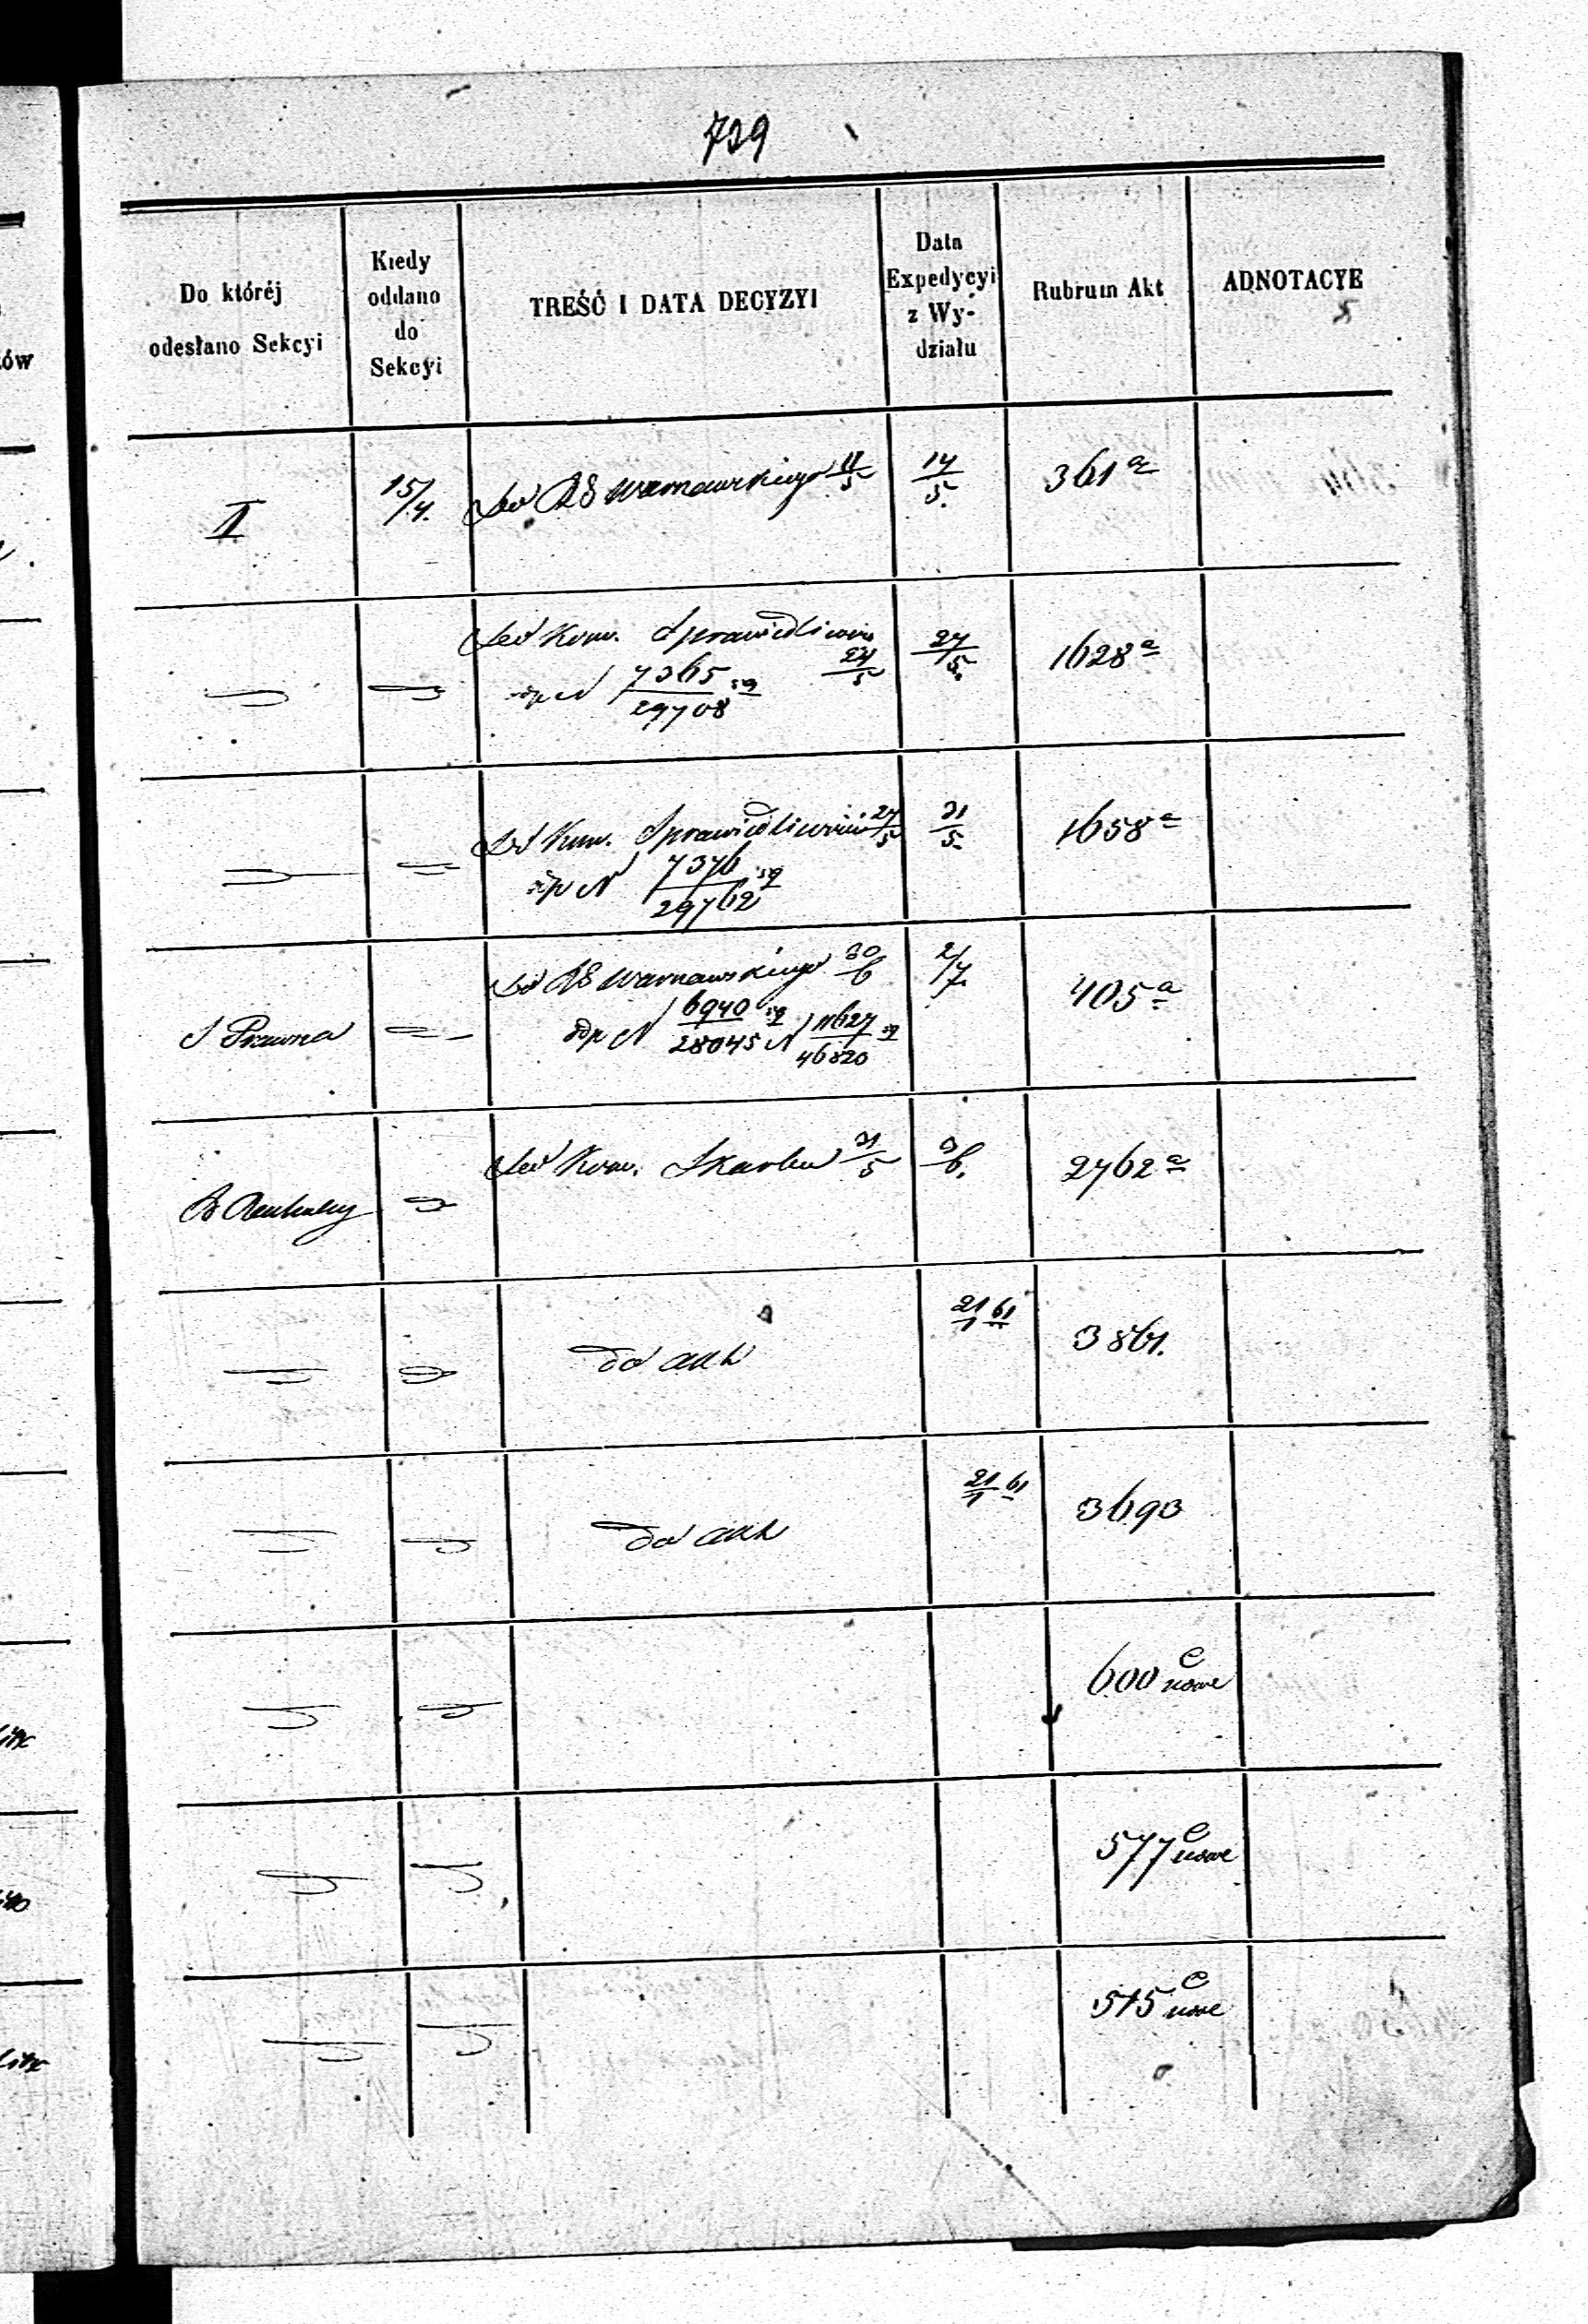 729
Do któréj
odesłano Sekcyi
Kiedy
oddano
do
Sekcyi
TREŚĆ I DATA DECYZYI
Data
Expedycyi
z Wy-
działu
Rubrum Akt
ADNOTACYE
II 15/4. Do RG Warszawskiego 11/5 14/5. 361 a
Do Kom. Sprawiedliwości 24/5 27/5. 1628 a
odp N 7365/29708 59
Do Kom. Sprawiedliwości 27/5 31/5. 1658 a
odp N 7376/29762 59
S Prawna Do RG Warszawskiego 30/6 2/7. 405 a
odp N 6940/28045 59 N 11627/46820 59
Do Kom. Skarbu 31/5 3/6. 2762 a
do akt 21/1 61 3861.
do akt 21/1 61 3693
600 C nowe
577 C nowe
515 C nowe